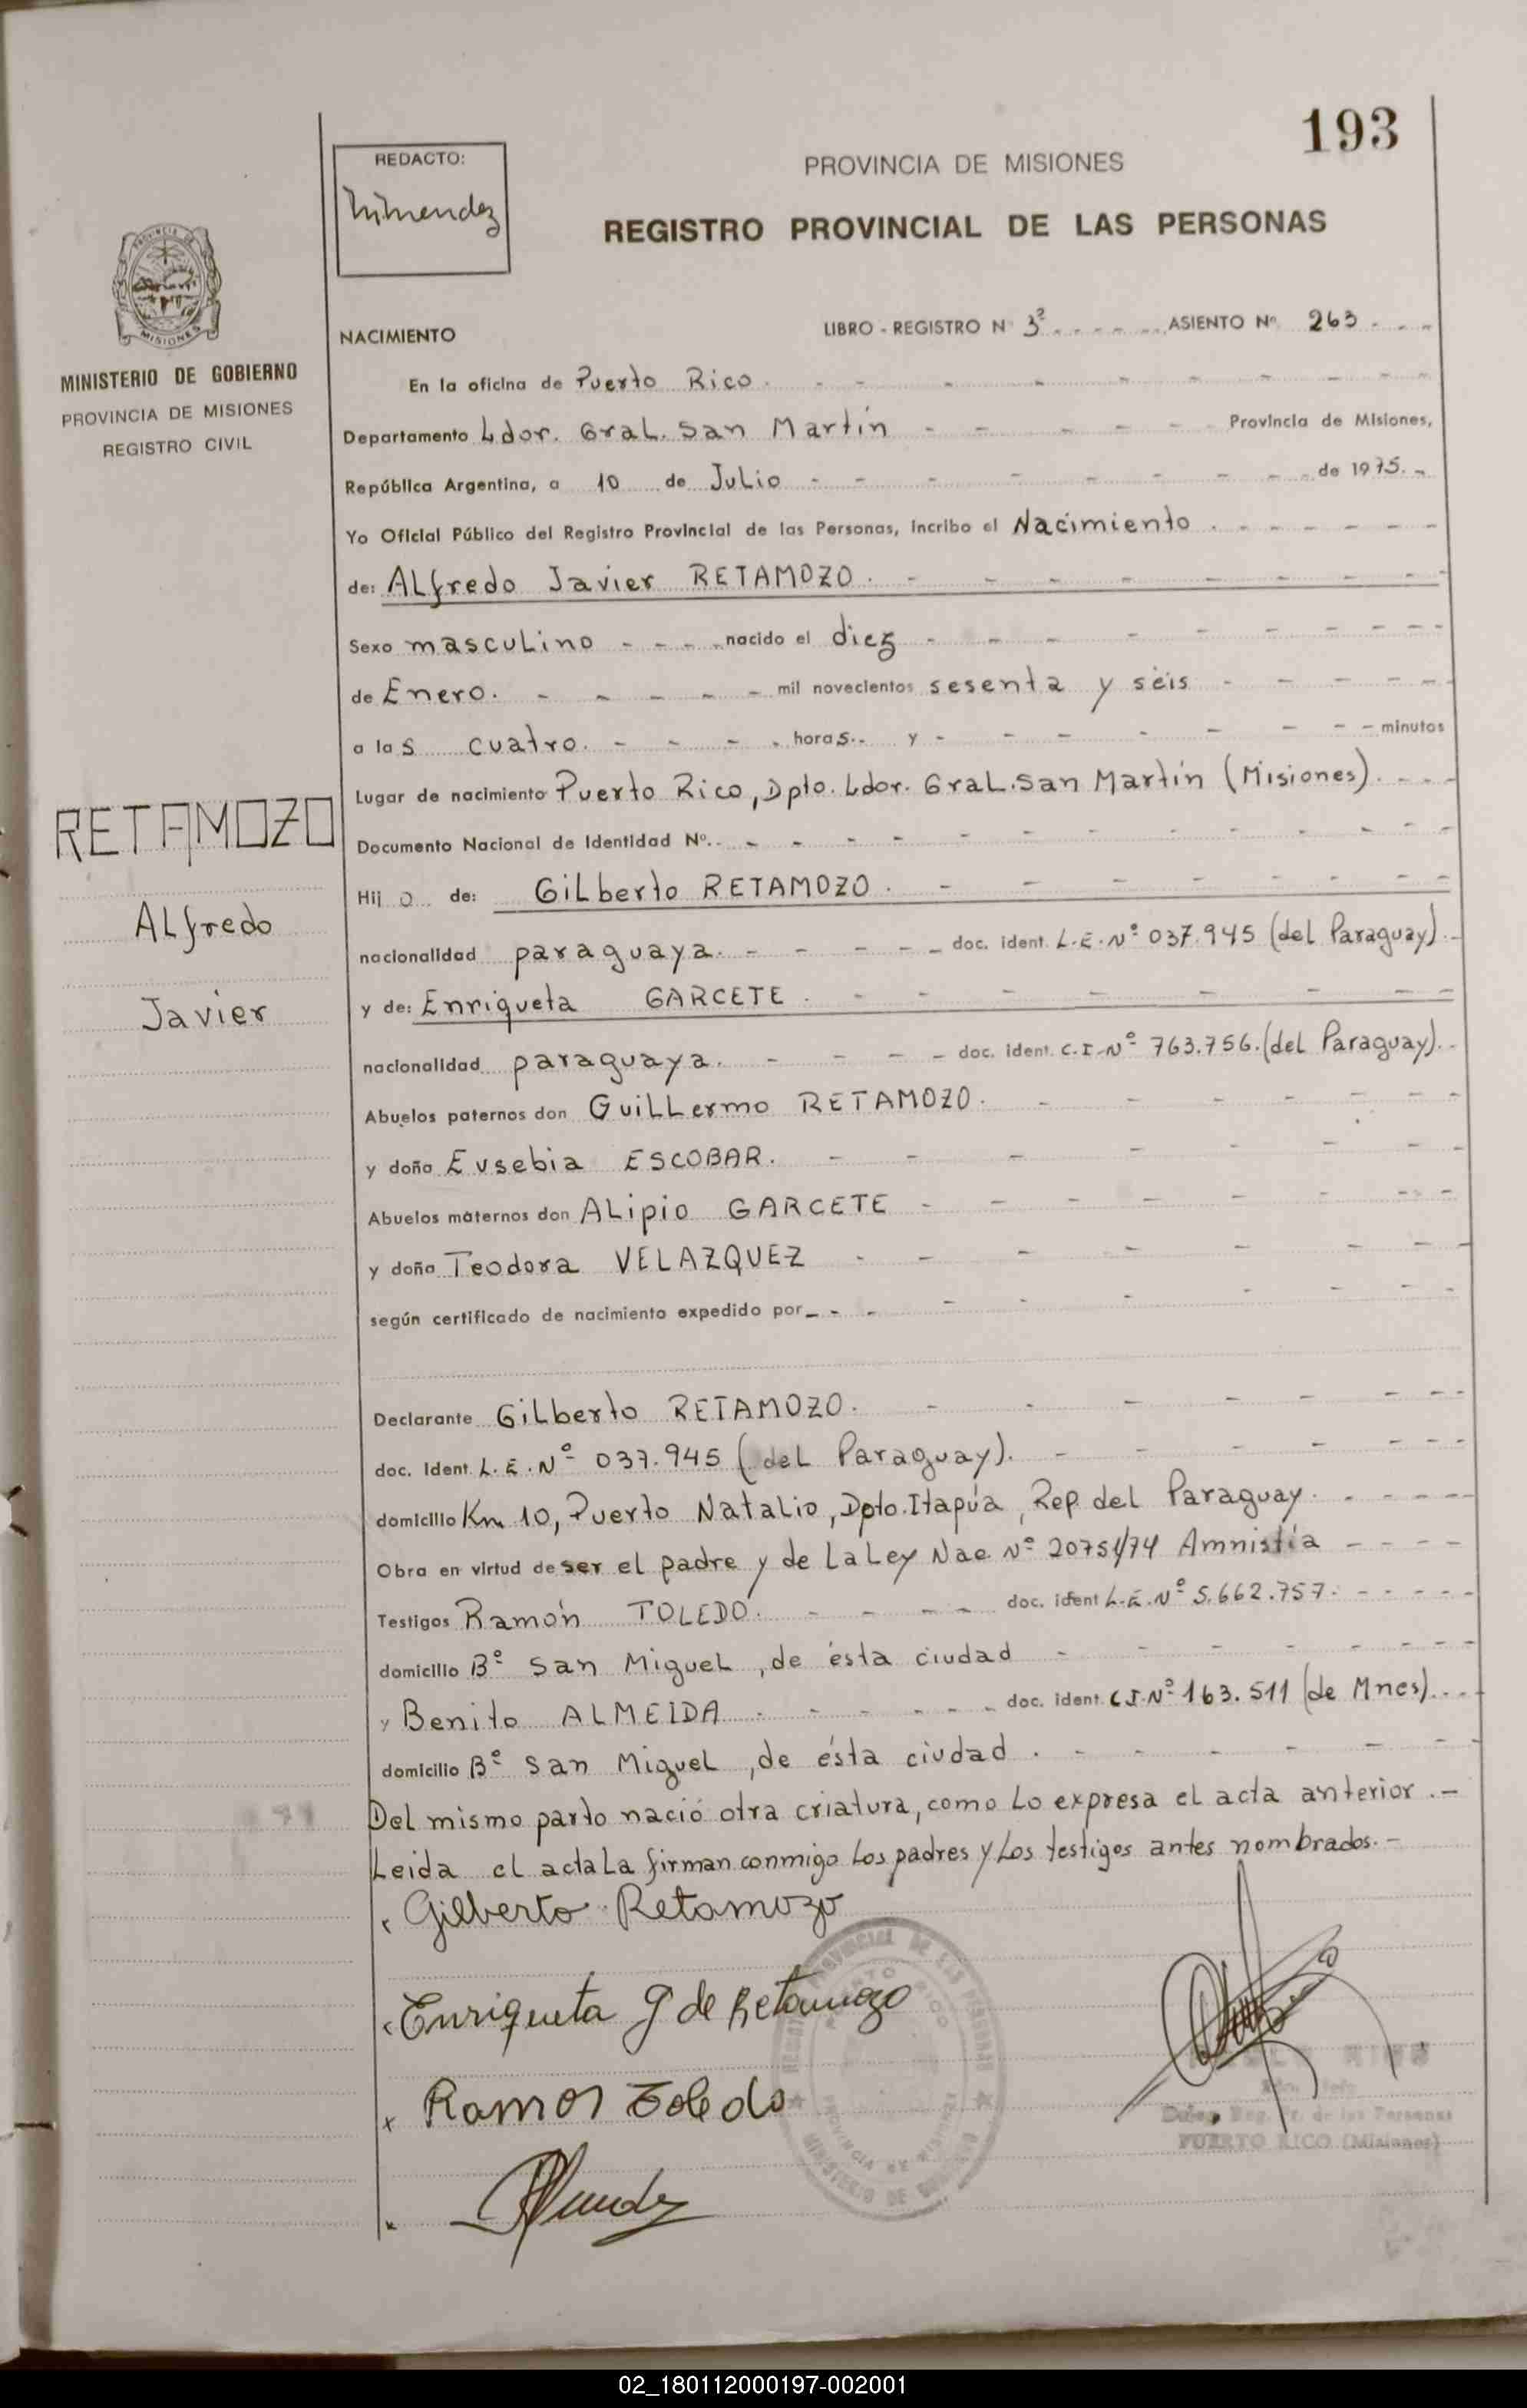 193
REDACTO:
PROVINCIA DE MISIONES
REGISTRO PROVINCIAL DE LAS PERSONAS
PROVINCIA DE
MISIONES
MINISTERIO DE GOBIERNO
PROVINCIA DE MISIONES
REGISTRO CIVIL
NACIMIENTO LIBRO - REGISTRO N° 3º ASIENTO Nº 263
En la oficina de Puerto Rico.
Departamento Ldor. Gral. San Martín Provincia de Misiones,
República Argentina, a 10 de Julio de 1975.
Yo Oficial Público del Registro Provincial de las Personas, incribo el Nacimiento.
de: ALfredo Javier RETAMOZO.
Sexo masculino nacido el diez
de Enero. mil novecientos sesenta y séis
a las cuatro. horas y minutos
Lugar de nacimiento Puerto Rico, Dpto. Ldor. Gral. San Martín (Misiones).
Documento Nacional de Identidad Nº.
Hijo de: GiLberto RETAMOZO.
nacionalidad paraguaya. doc. ident. L.E. Nº 037.945 (del Paraguay).
y de: Enriqueta GARCETE.
nacionalidad paraguaya. doc. ident. C.I. Nº 763.756. (del Paraguay).
Abuelos paternos don GuiLLermo RETAMOZO.
y doña Eusebia ESCOBAR.
Abuelos maternos don ALipio GARCETE
y doña Teodora VELAZQUEZ
según certificado de nacimiento expedido por
Declarante GiLberto RETAMOZO.
doc. Ident. L.E. Nº 037.945 (deL Paraguay).
domicilio Km 10, Puerto Natalio, Dpto. Itapúa, Rep. del Paraguay.
Obra en virtud de ser el padre y de La Ley Nac. Nº 20751/74 Amnistía
Testigos Ramón TOLEDO. doc. ident L.E. Nº 5.662.757.
domicilio Bº San MigueL, de ésta ciudad
y Benito ALMEIDA doc. ident. C.I. Nº 163.511 (de Mnes).
domicilio Bº San MigueL, de ésta ciudad.
Del mismo parto nació otra criatura, como Lo expresa el acta anterior.-
Leida el acta La firman conmigo Los padres y Los testigos antes nombrados.-
Gilberto Retamozo
Enriqueta G de Retamozo
x Ramon Toledo
RETAMOZO
ALfredo
Javier
PUERTO RICO (Misiones)
02_180112000197-002001